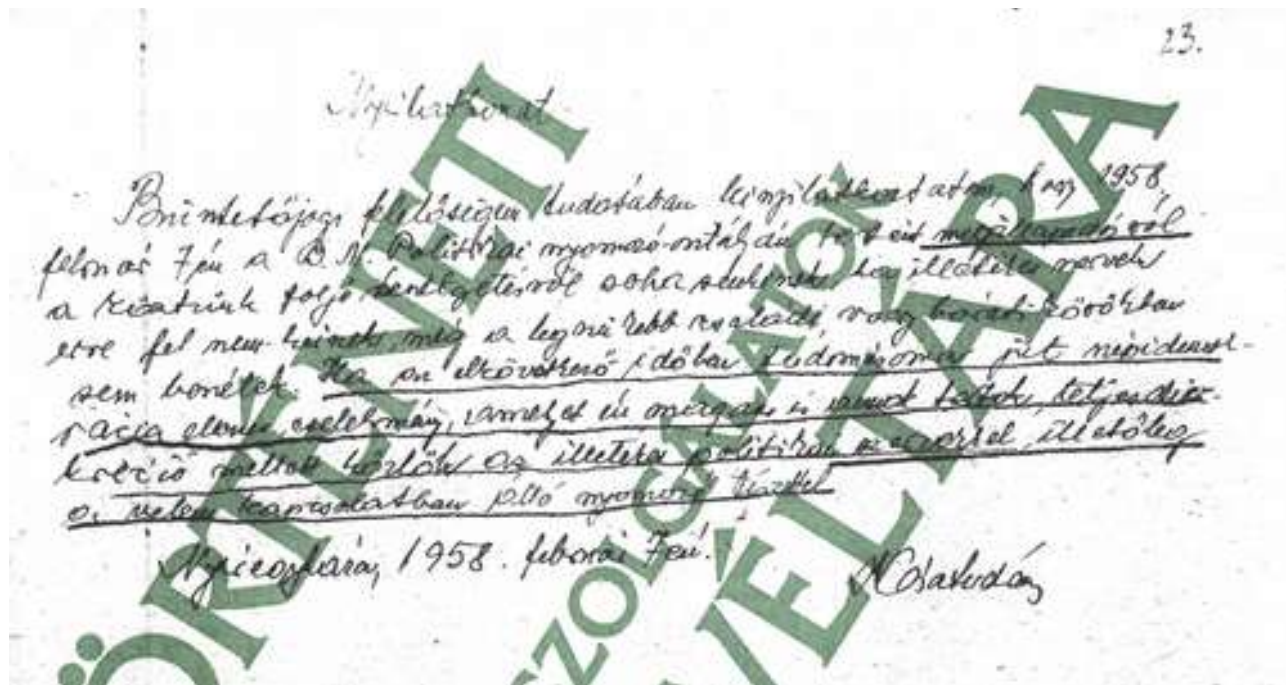 23.
Nyilatkozat
Büntetőjogi felelősségem tudatában kinyilatkoztatom, hogy 1958,
február 7-én a B.M. Politikai nyomozó osztályán történt megállapodásról
a köztünk folyó beszélgetésről soha senkinek ha illetékes szervek
erre fel nem kérnek, még a legszűkebb családi vagy baráti körökben
sem beszélek. Ha az elkövetkező időben tudomásomra jut népidemok-
rácia ellenes cselekmény, amelyet én magam is annak tartok, teljes disz-
kréció mellett közlök az illetékes politikai szervekkel, illetőleg
a velem kapcsolatban álló nyomozó tiszttel
Nyíregyháza, 1958. február 7-én.
TÖRTÉNETI
SZOLGÁLATOK
LEVÉLTÁRA